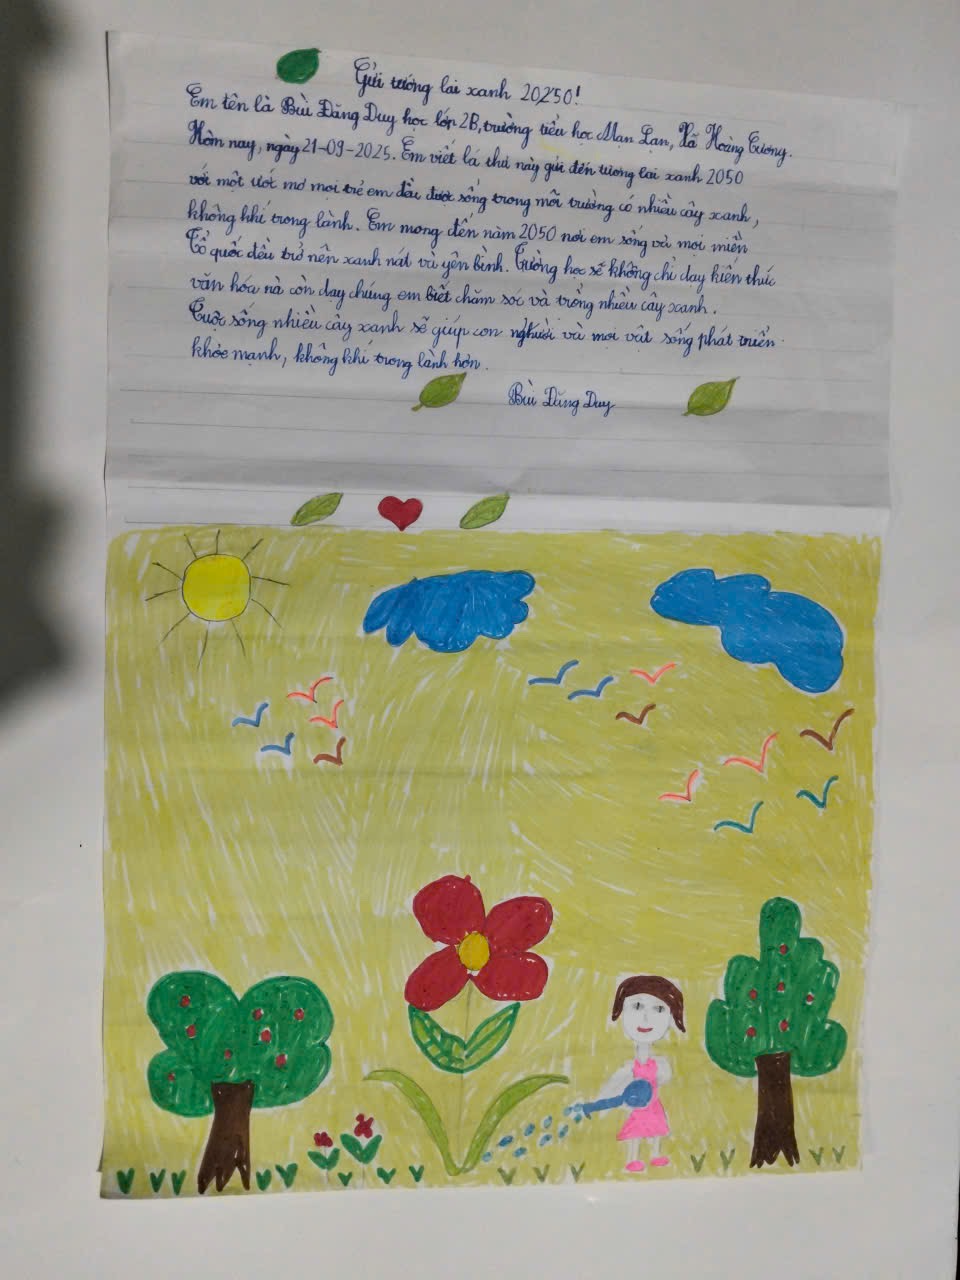 Gửi tương lai xanh 20250!
Em tên là Bùi Đăng Duy học lớp 2B, trường tiểu học Mạn Lạn, Xã Hoàng Cương.
Hôm nay, ngày 21-09-2025. Em viết lá thư này gửi đến tương lai xanh 2050
với một ước mơ mọi trẻ em đều được sống trong môi trường có nhiều cây xanh,
không khí trong lành. Em mong đến năm 2050 nơi em sống và mọi miền
Tổ quốc đều trở nên xanh mát và yên bình. Trường học sẽ không chỉ dạy kiến thức
văn hóa mà còn dạy chúng em biết chăm sóc và trồng nhiều cây xanh.
Cuộc sống nhiều cây xanh sẽ giúp con người và mọi vật sống phát triển
khỏe mạnh, không khí trong lành hơn.
Bùi Đăng Duy